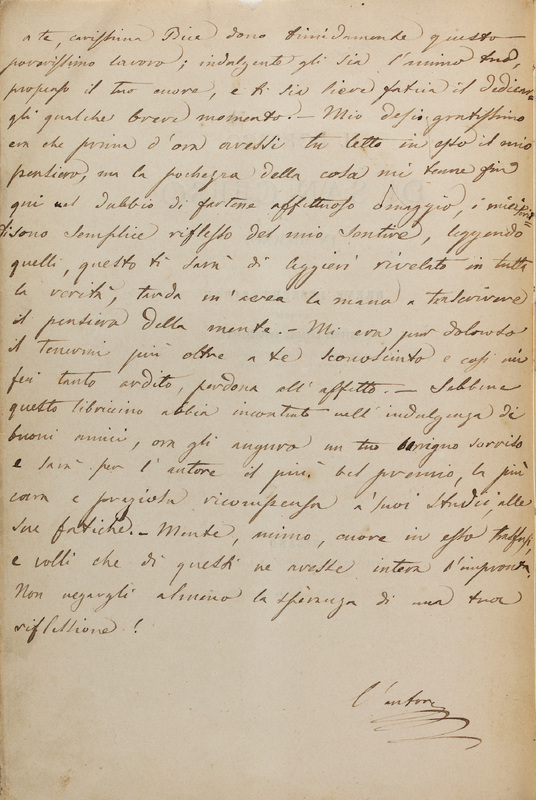 a te, carissima Bice dono timidamente questo
poverissimo lavoro; indulgente gli sia l'animo tuo,
propenso il tuo cuore, e ti sia lieve fatica il dedicar=
gli qualche breve momento. - Mio desio gratissimo
era che prima d'ora avessi tu letto in esso il mio
pensiero, ma la pochezza della cosa mi tenne fin
qui nel dubbio di fartene affettuoso omaggio, i miei
sono semplice riflesso del mio sentire, leggendo
quelli, questo ti sarà di leggieri rivelato in tutta
la verità, tarda m'avea la mano a trascrivere
il pensiero della mente. - Mi era pur doloroso
il tenermi più oltre a te sconosciuto e così mi
fei tanto ardito, perdona all'affetto. - Sebbene
questo libriccino abbia incontrato nell'indulgenza di
buoni amici, ora gli auguro un tuo benigno sorriso
e sarà per l'autore il più bel premio, la più
cara e preziosa ricompensa a' suoi studii alle
sue fatiche. - Mente, animo, cuore in esso trasfusi,
e volli che di questi ne avesse intera l'impronta.
Non negargli almeno la speranza di una tua
riflessione!
l'autore